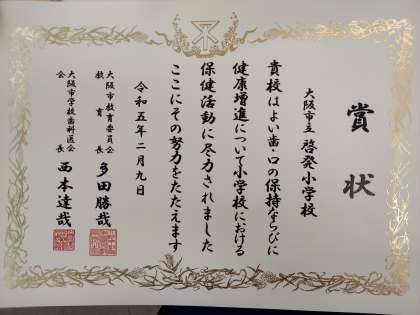 賞状
大阪市立 啓発小学校
貴校はよい歯・口の保持ならびに
健康増進について小学校における
保健活動に尽力されました
ここにその努力をたたえます
令和五年二月九日
大阪市教育委員会
教育長 多田勝哉
大阪市学校歯科医会
会長 西本達哉